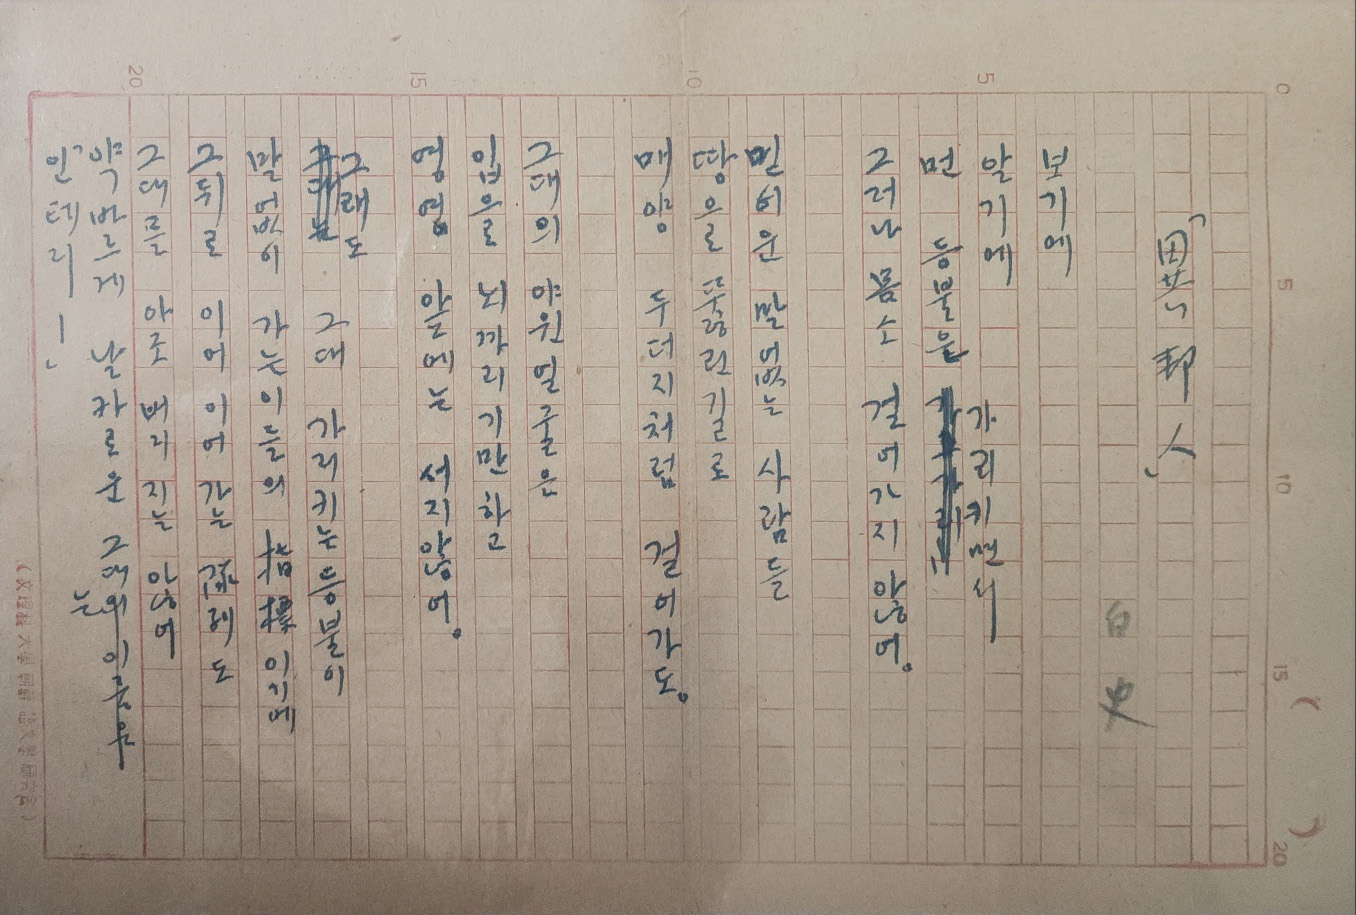 「異邦人」
白史
보기에
알기에
먼 등불을 가리키면서
그러나 몸소 걸어가지 않어.
믿어운 말없는 사람들
땅으로 뚫린 길로
매양 두더지처럼 걸어가도.
그대의 야윈 얼굴은
입으로 뇌까리기만 하고
영영 앞에는 서지 않어.
그래도 그대 가리키는 등불이
말없이 가는 이들의 指標이기에
그 뒤로 이어 이어 가는 레도
그대를 아조 버리지는 않어
약바르게 날카로운 그대의 이름은
는
「인테리ㅡ」
5
10
15
20
0
5
10
15
20